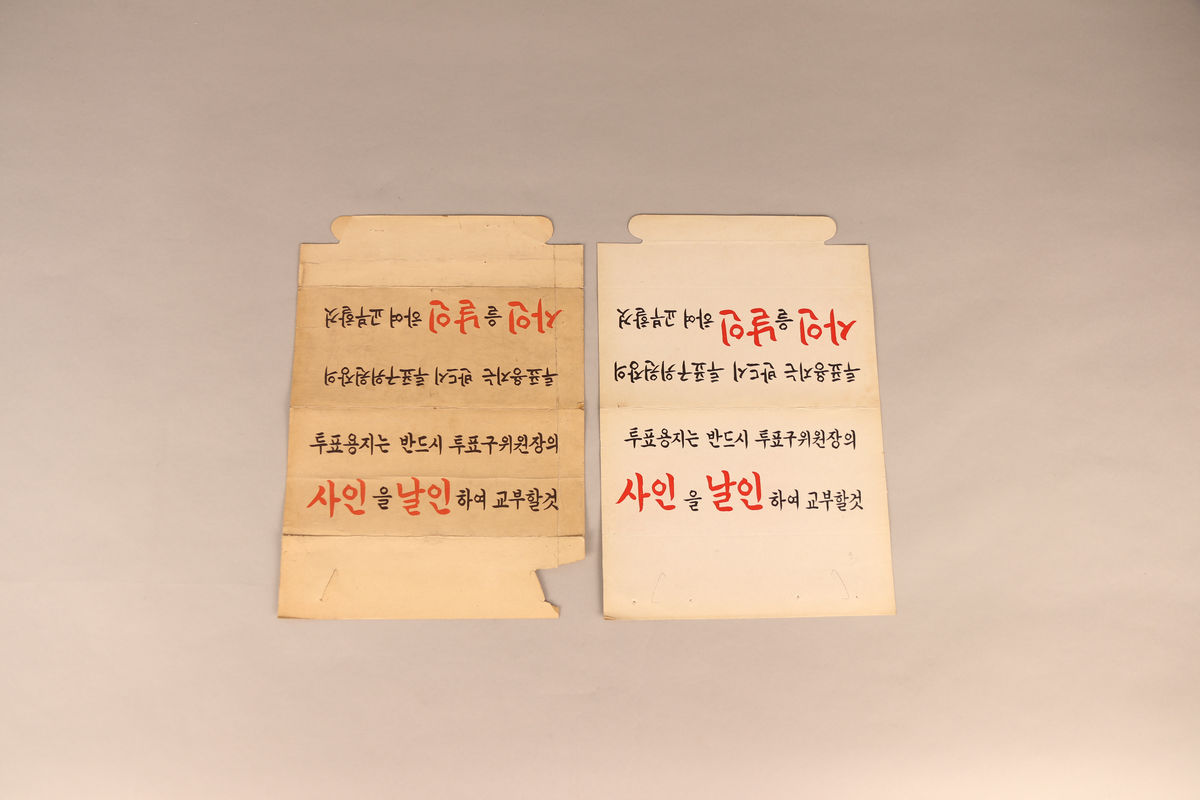 사인을 날인하여 교부할것
투표용지는 반드시 투표구위원장의
투표용지는 반드시 투표구위원장의
사인을 날인하여 교부할것
사인을 날인하여 교부할것
투표용지는 반드시 투표구위원장의
투표용지는 반드시 투표구위원장의
사인을 날인하여 교부할것